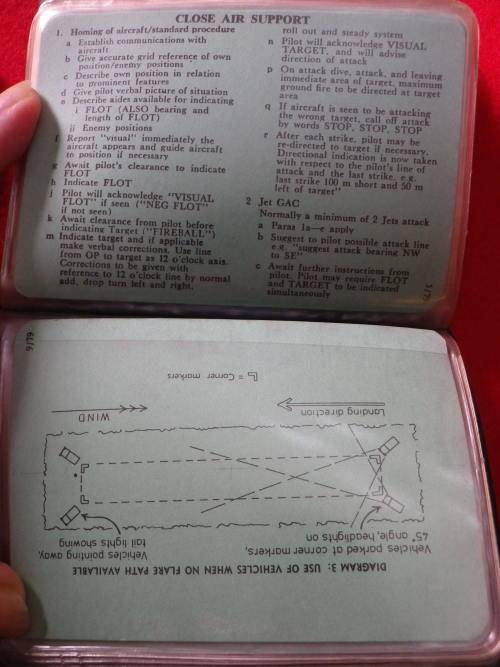 CLOSE AIR SUPPORT
1. Homing of aircraft/standard procedure
a Establish communications with
aircraft
b Give accurate grid reference of own
position/enemy positions
c Describe own position in relation
to prominent features
d Give pilot verbal picture of situation
e Describe aids available for indicating
i FLOT (ALSO bearing and
length of FLOT)
ii Enemy positions
f Report "visual" immediately the
aircraft appears and guide aircraft
to position if necessary
g Await pilot's clearance to indicate
FLOT
h Indicate FLOT
j Pilot will acknowledge "VISUAL
FLOT" if seen ("NEG FLOT"
if not seen)
k Await clearance from pilot before
indicating Target ("FIREBALL")
m Indicate target and if applicable
make verbal corrections. Use line
from OP to target as 12 o'clock axis.
Corrections to be given with
reference to 12 o'clock line by normal
add, drop turn left and right.
roll out and steady system
n Pilot will acknowledge VISUAL
TARGET, and will advise
direction of attack
p On attack dive, attack, and leaving
immediate area of target, maximum
ground fire to be directed at target
area
q If aircraft is seen to be attacking
the wrong target, call off attack
by words STOP, STOP, STOP
r After each strike, pilot may be
re-directed to target if necessary.
Directional indication is now taken
with respect to the pilot's line of
attack and the last strike, e.g.
"last strike 100 m short and 50 m
left of target"
2 Jet GAC
Normally a minimum of 2 Jets attack
a Paras 1a—e apply
b Suggest to pilot possible attack line
e.g. "suggest attack bearing NW
to SE"
c Await further instructions from
pilot. Pilot may require FLOT
and TARGET to be indicated
simultaneously
5/79
DIAGRAM 3: USE OF VEHICLES WHEN NO FLARE PATH AVAILABLE
Vehicles parked at corner markers,
45° angle, headlights on
Vehicles pointing away,
tail lights showing
Landing direction
WIND
= Corner markers
9/79